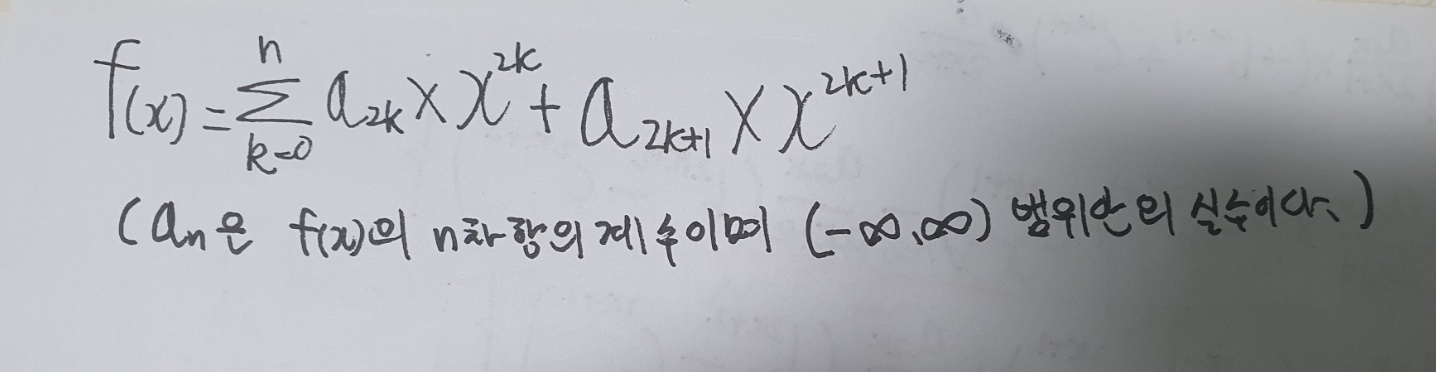 f(x) = \sum_{k=0}^{n} a_{2k} × x^{2k} + a_{2k+1} × x^{2k+1}
(a_n은 f(x)의 n차항의 계수이며 (-∞,∞) 범위안의 실수이다.)